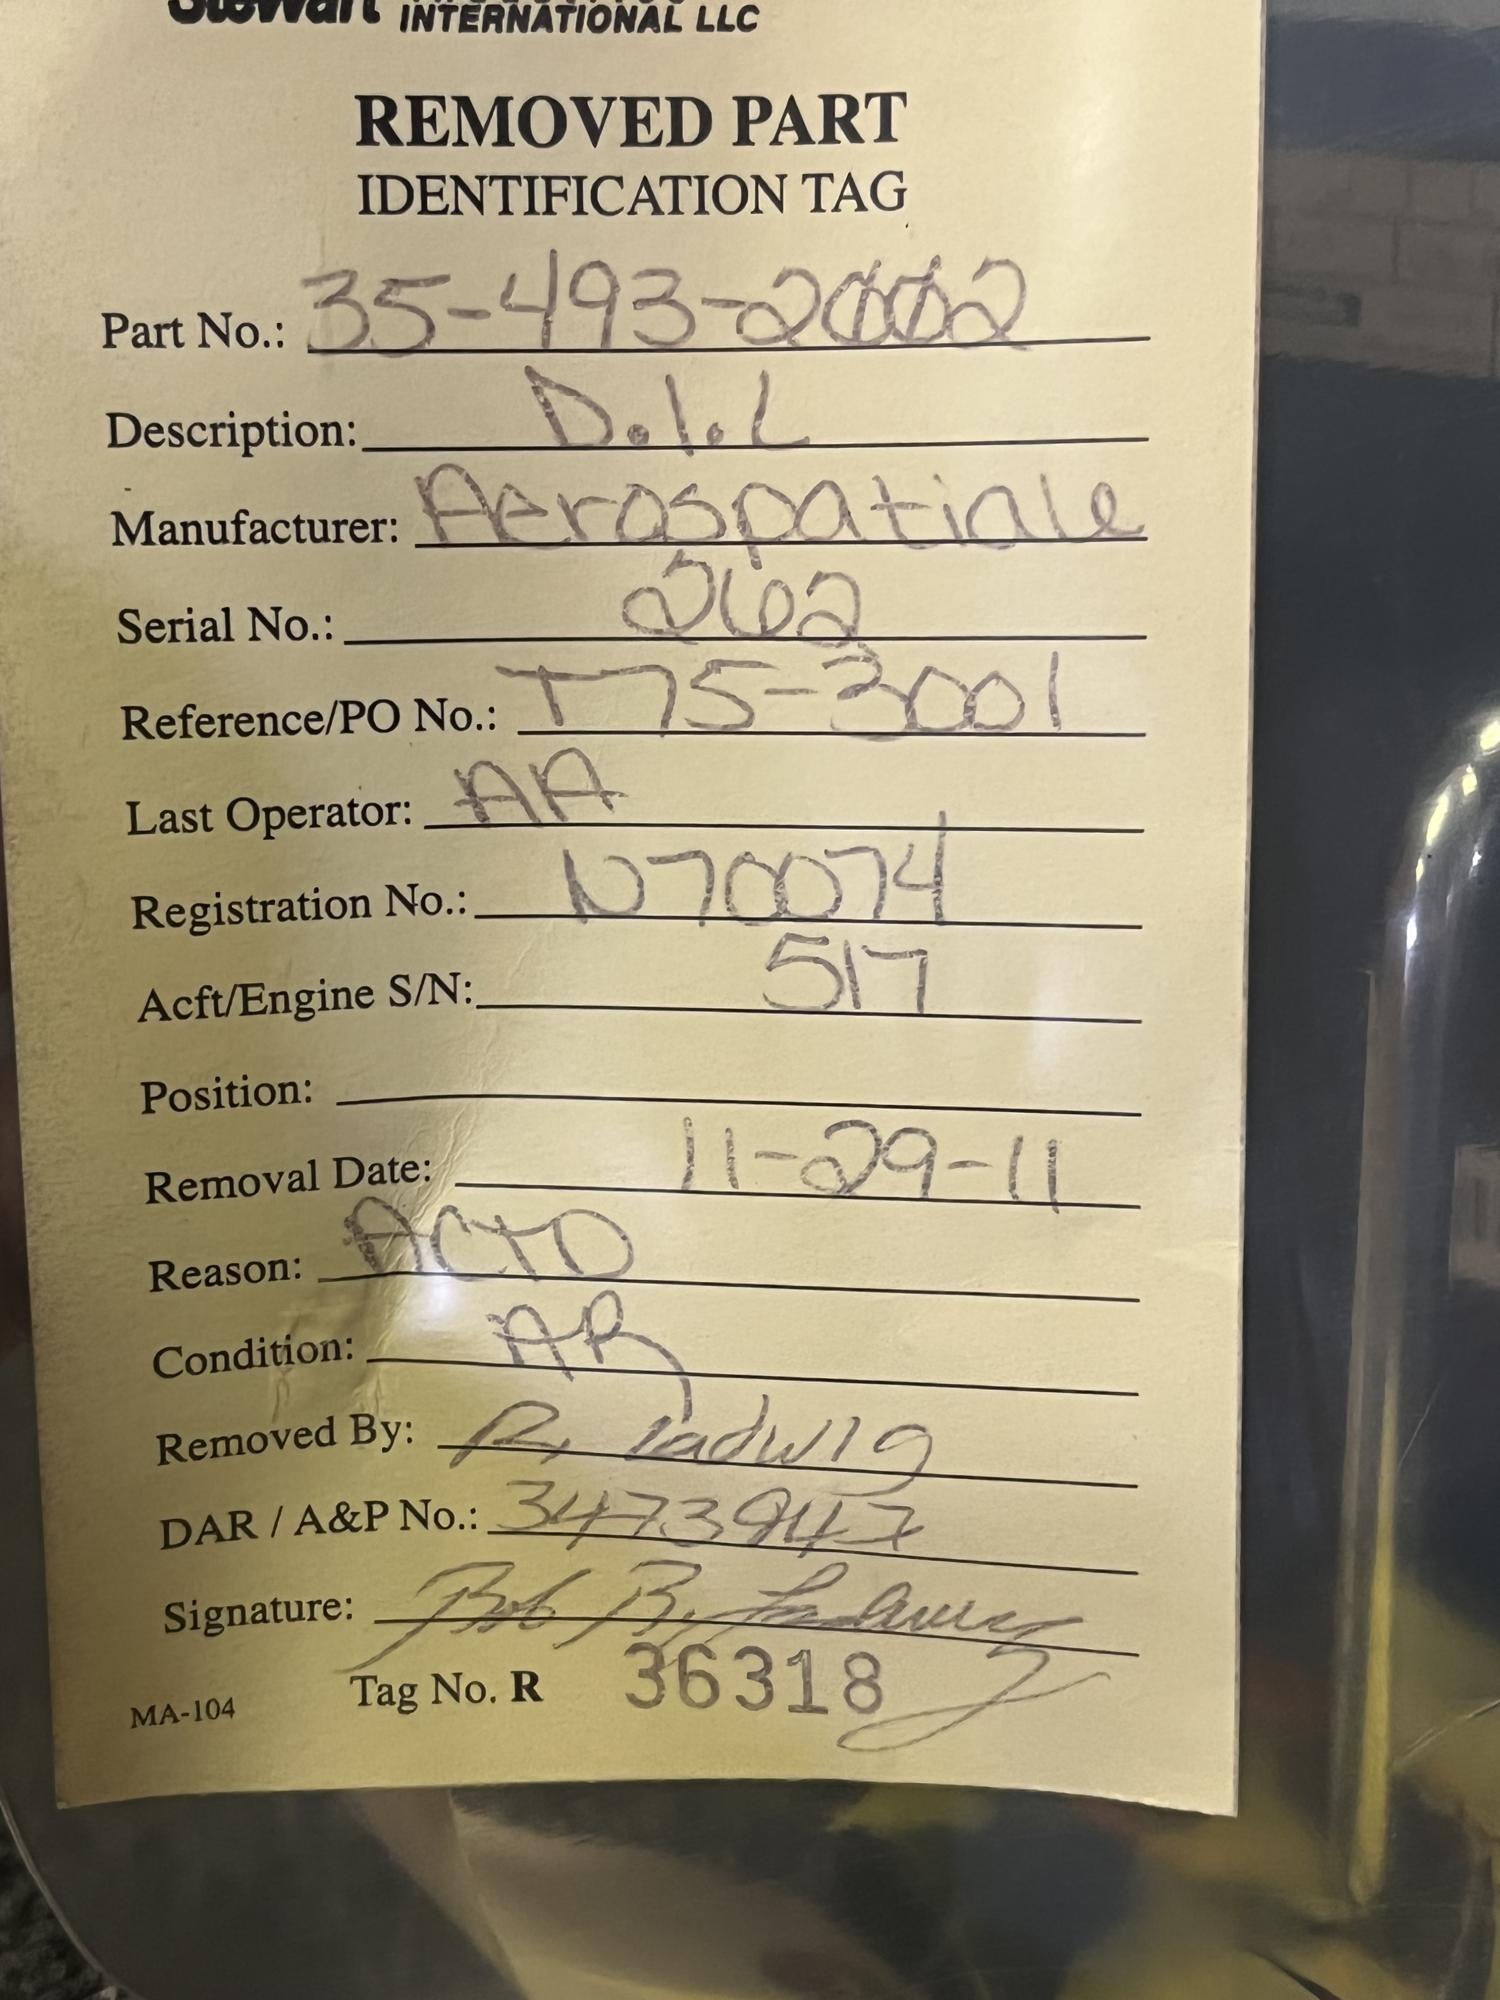 Stewart
INTERNATIONAL LLC
REMOVED PART
IDENTIFICATION TAG
Part No.: 35-493-2002
Description: D.I.L
Manufacturer: Aerospatiale
Serial No.: 262
Reference/PO No.: T75-3001
Last Operator: AA
Registration No.: N70074
Acft/Engine S/N: 517
Position:
Removal Date: 11-29-11
Reason: ACTD
Condition: AR
Removed By: R. Ladwig
DAR / A&P No.: 3473947
Signature:
Tag No. R 36318
MA-104